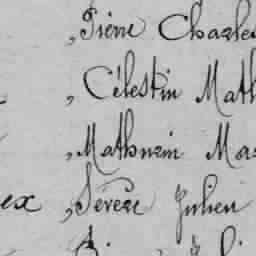 , Irène Charles
, Célestin Math
, Mathurin Ma
ex , Sévère Julien